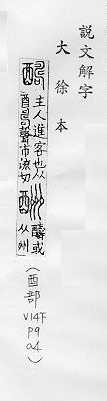 說文解字
大徐本
醻主人進客也从
酉𠷎聲市流切
酬醻或
从州
(酉部
V14下
P9
a4)